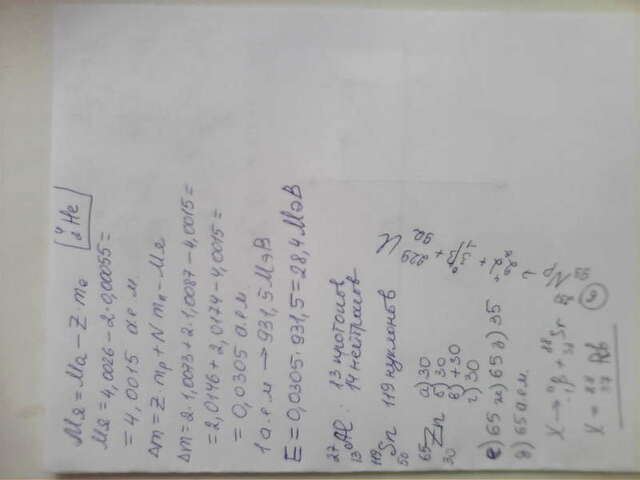 Mя = Ma − Z·me   ⁴₂He
Mя = 4,0026 − 2·0,00055 =
= 4,0015 а.е.м.
Δm = Z mp + N mn − Mя
Δm = 2·1,0073 + 2·1,0087 − 4,0015 =
= 2,0146 + 2,0174 − 4,0015 =
= 0,0305 а.е.м
1 а.е.м → 931,5 МэВ
E = 0,0305·931,5 = 28,4 МэВ
²⁷₁₃Al : 13 протонов
14 нейтронов
¹¹⁹₅₀Sn 119 нуклонов
⁶⁵₃₀Zn а) 30
б) 30
в) +30
г) 30
е) 65 ж) 65 з) 35
д) 65 а.е.м.
X → ⁰₋₁β + ⁸⁸₃₈Sr
X = ⁸⁸₃₇Rb